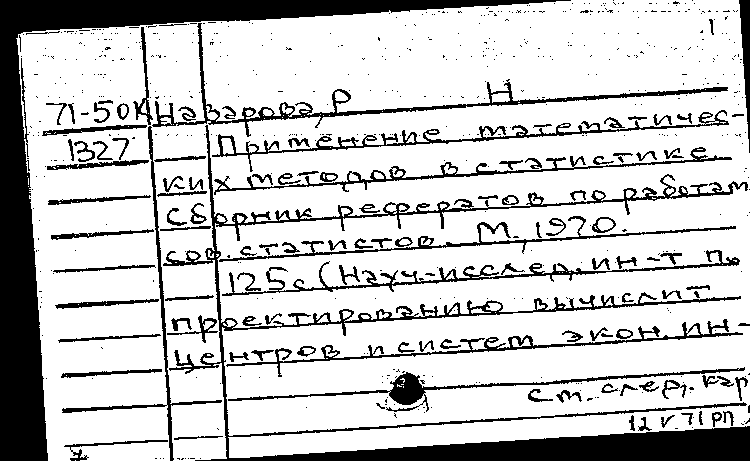 1
71-50К Назарова, Р Н
1327 Применение математичес-
ких методов в статистике.
Сборник рефератов по работам
сов. статистов. М., 1970.
125с. (Науч.-исслед. ин-т по
проектированию вычислит.
центров и систем экон. ин-
ст. след. кар
12 V 71 РП